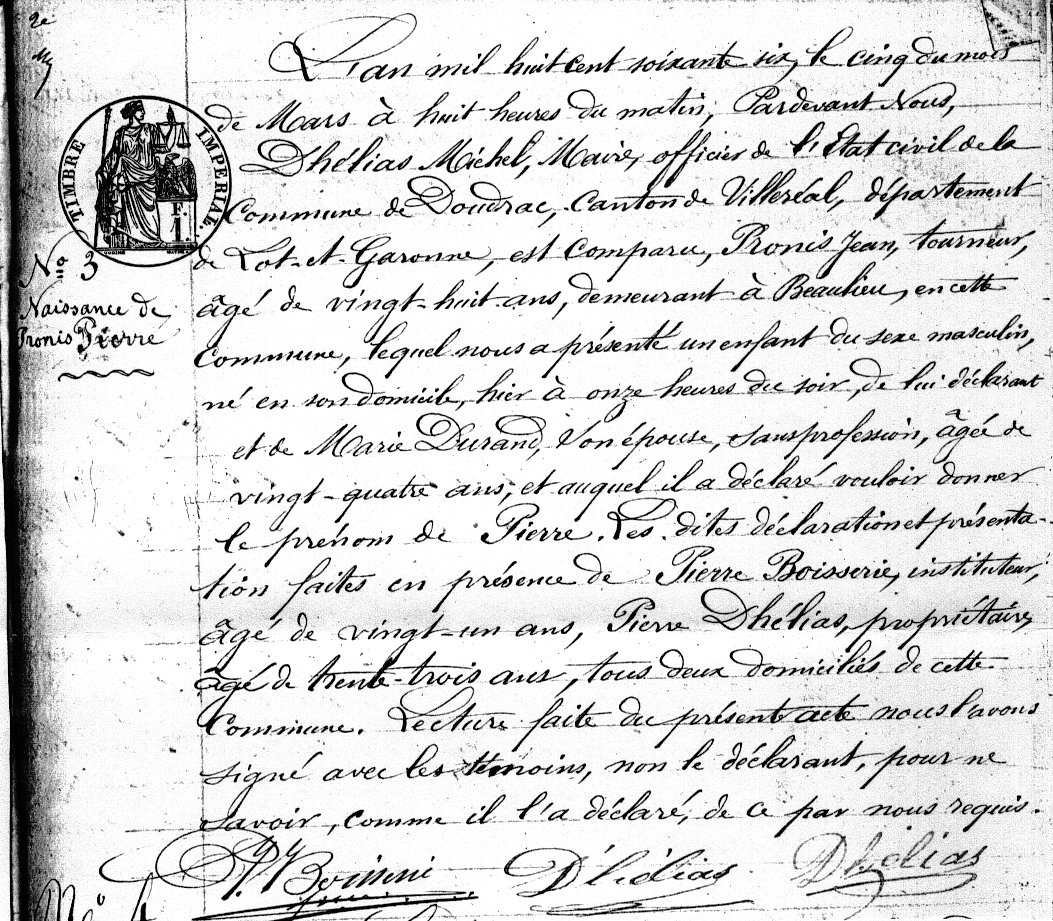 2e
L'an mil huit cent soixante six, le cinq du mois
de Mars à huit heures du matin; Pardevant Nous,
Dhélias Michel, Maire, officier de l'État civil de la
TIMBRE IMPERIAL.
Commune de Doudrac, Canton de Villeréal, département
de Lot-et-Garonne, est comparu, Pronis Jean, tourneur,
No 3
Naissance de
Pronis Pierre
âgé de vingt-huit-ans, demeurant à Beaulieu, en cette
Commune, lequel nous a présenté un enfant du sexe masculin,
né en son domicile, hier à onze heures du soir, de lui déclarant
et de Marie Durand, son épouse, sans profession, âgée de
vingt-quatre ans, et auquel il a déclaré vouloir donner
le prénom de Pierre. Les dites déclaration et présenta-
tion faites en présence de Pierre Boisserie, instituteur,
âgé de vingt-un ans, Pierre Dhélias, propriétaire,
âgé de trente-trois ans, tous deux domiciliés de cette
Commune. Lecture faite du présent acte nous l'avons
signé avec les témoins, non le déclarant, pour ne
savoir, comme il l'a déclaré, de ce par nous requis.
Dhélias Dhélias